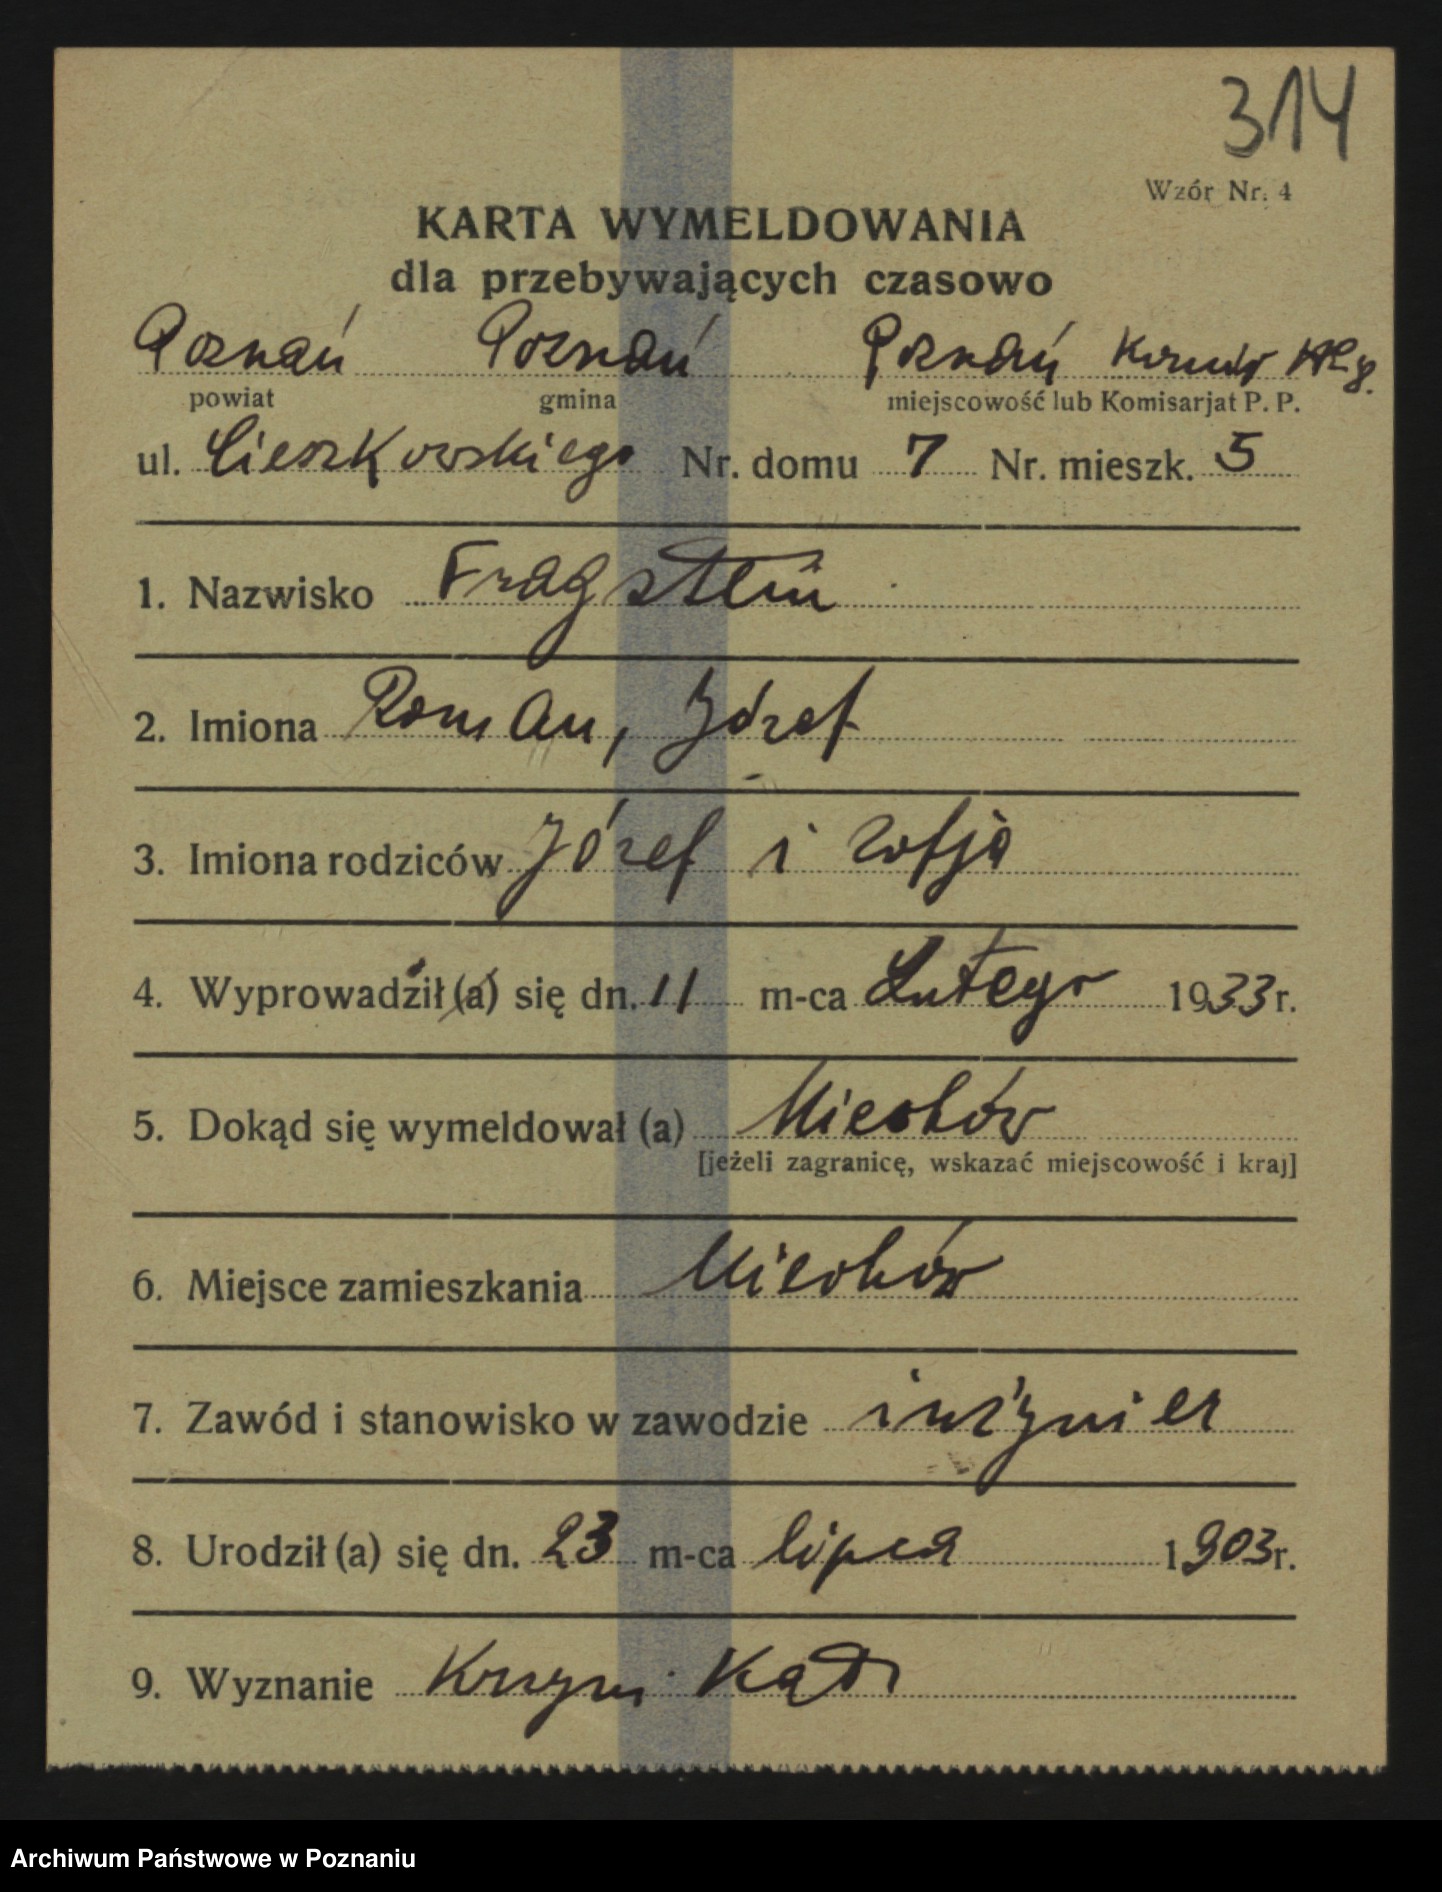 314
Wzór Nr. 4
KARTA WYMELDOWANIA
dla przebywających czasowo
Poznań Poznań Poznań
powiat gmina miejscowość lub Komisarjat P. P.
ul. Cieszkowskiego Nr. domu 7 Nr. mieszk. 5
1. Nazwisko Fragstein
2. Imiona Roman, Józef
3. Imiona rodziców Józef i Zofja
4. Wyprowadził (a) się dn. 11 m-ca Lutego 1933 r.
5. Dokąd się wymeldował (a) Miechów
[jeżeli zagranicę, wskazać miejscowość i kraj]
6. Miejsce zamieszkania Miechów
7. Zawód i stanowisko w zawodzie inżynier
8. Urodził (a) się dn. 23 m-ca lipca 1903 r.
9. Wyznanie
Archiwum Państwowe w Poznaniu